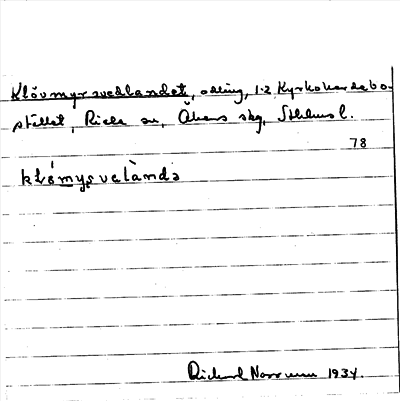 Klövmyrsvedlandet, odling, 1-2 Kyrkoherdebo-
stället, Riala sn, Åkers skg, Sthlms l.
78
klömysvelànda
Richard Norrman 1934.